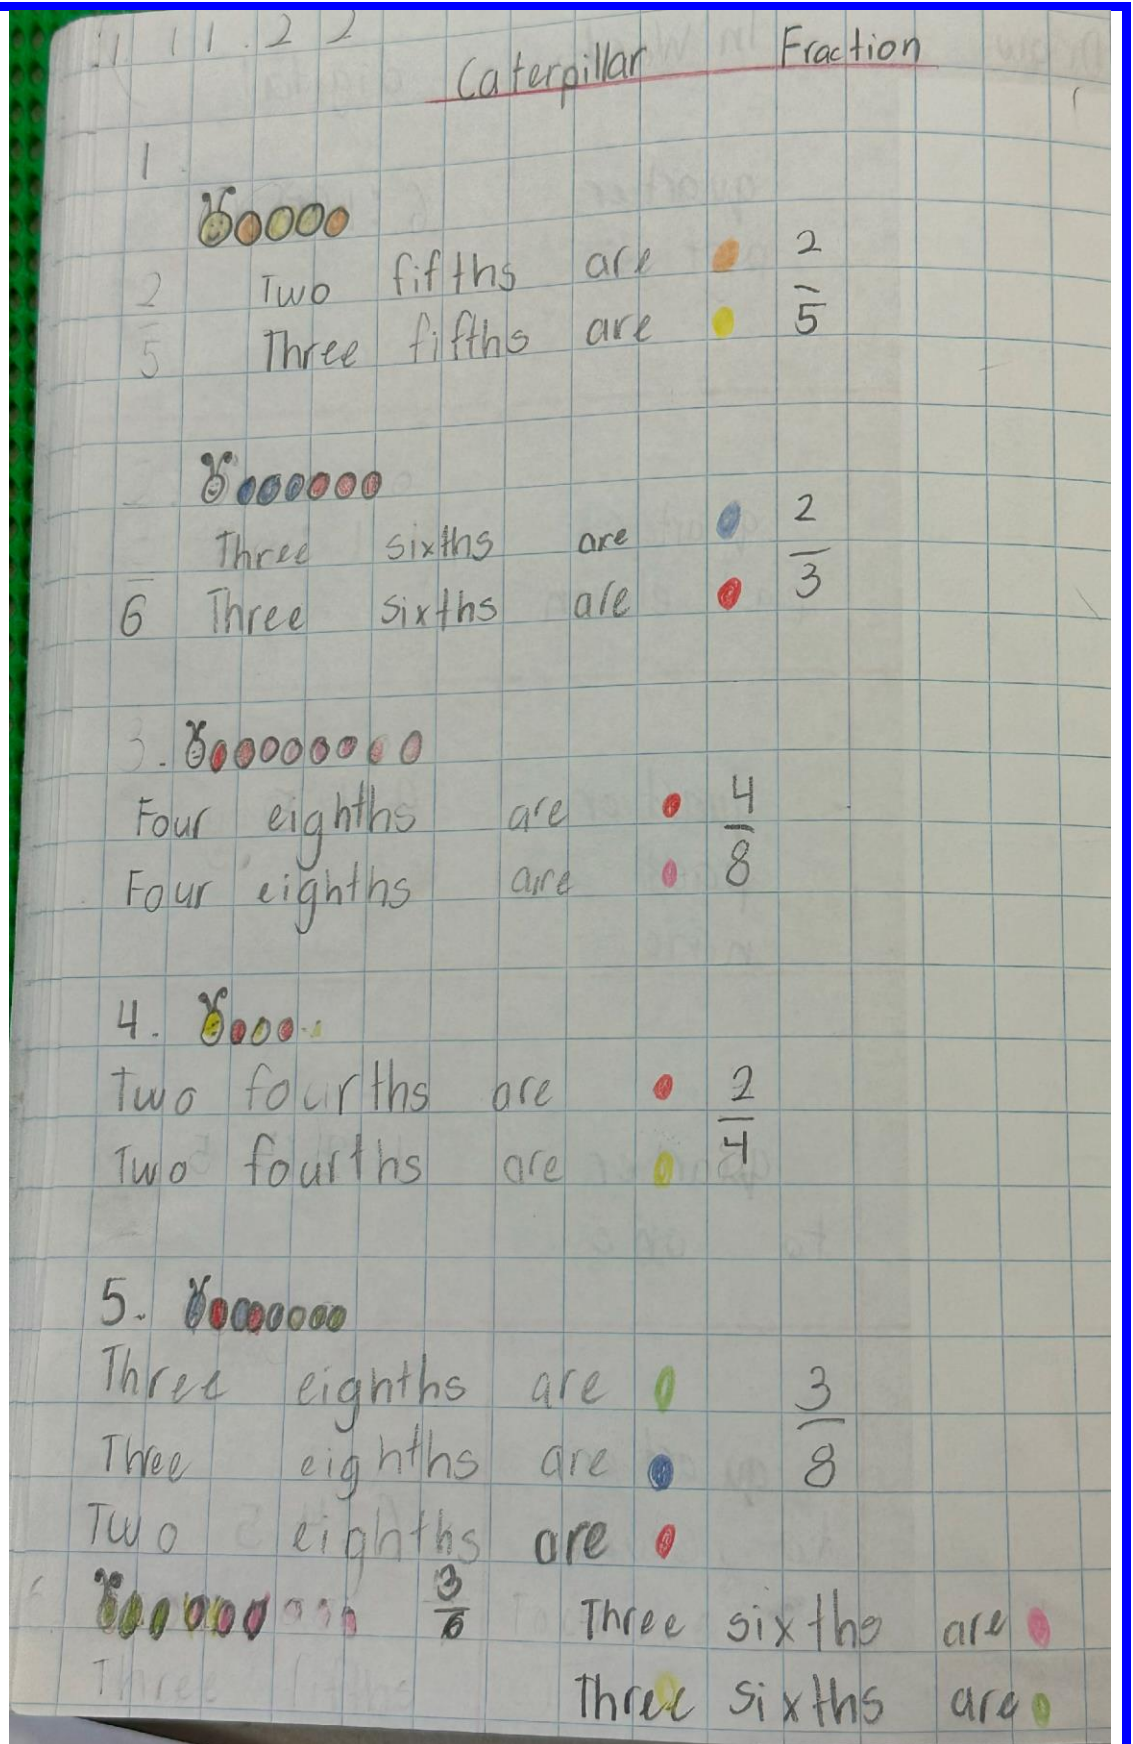 11.11.22
Caterpillar Fraction
1.
Two fifths are 2/5
2/5 Three fifths are
Three sixths are 2/3
6 Three sixths are
3.
Four eighths are 4/8
Four eighths are
4.
Two fourths are 2/4
Two fourths are
5.
Three eighths are 3/8
Three eighths are
Two eighths are
3/6 Three sixths are
Three sixths are